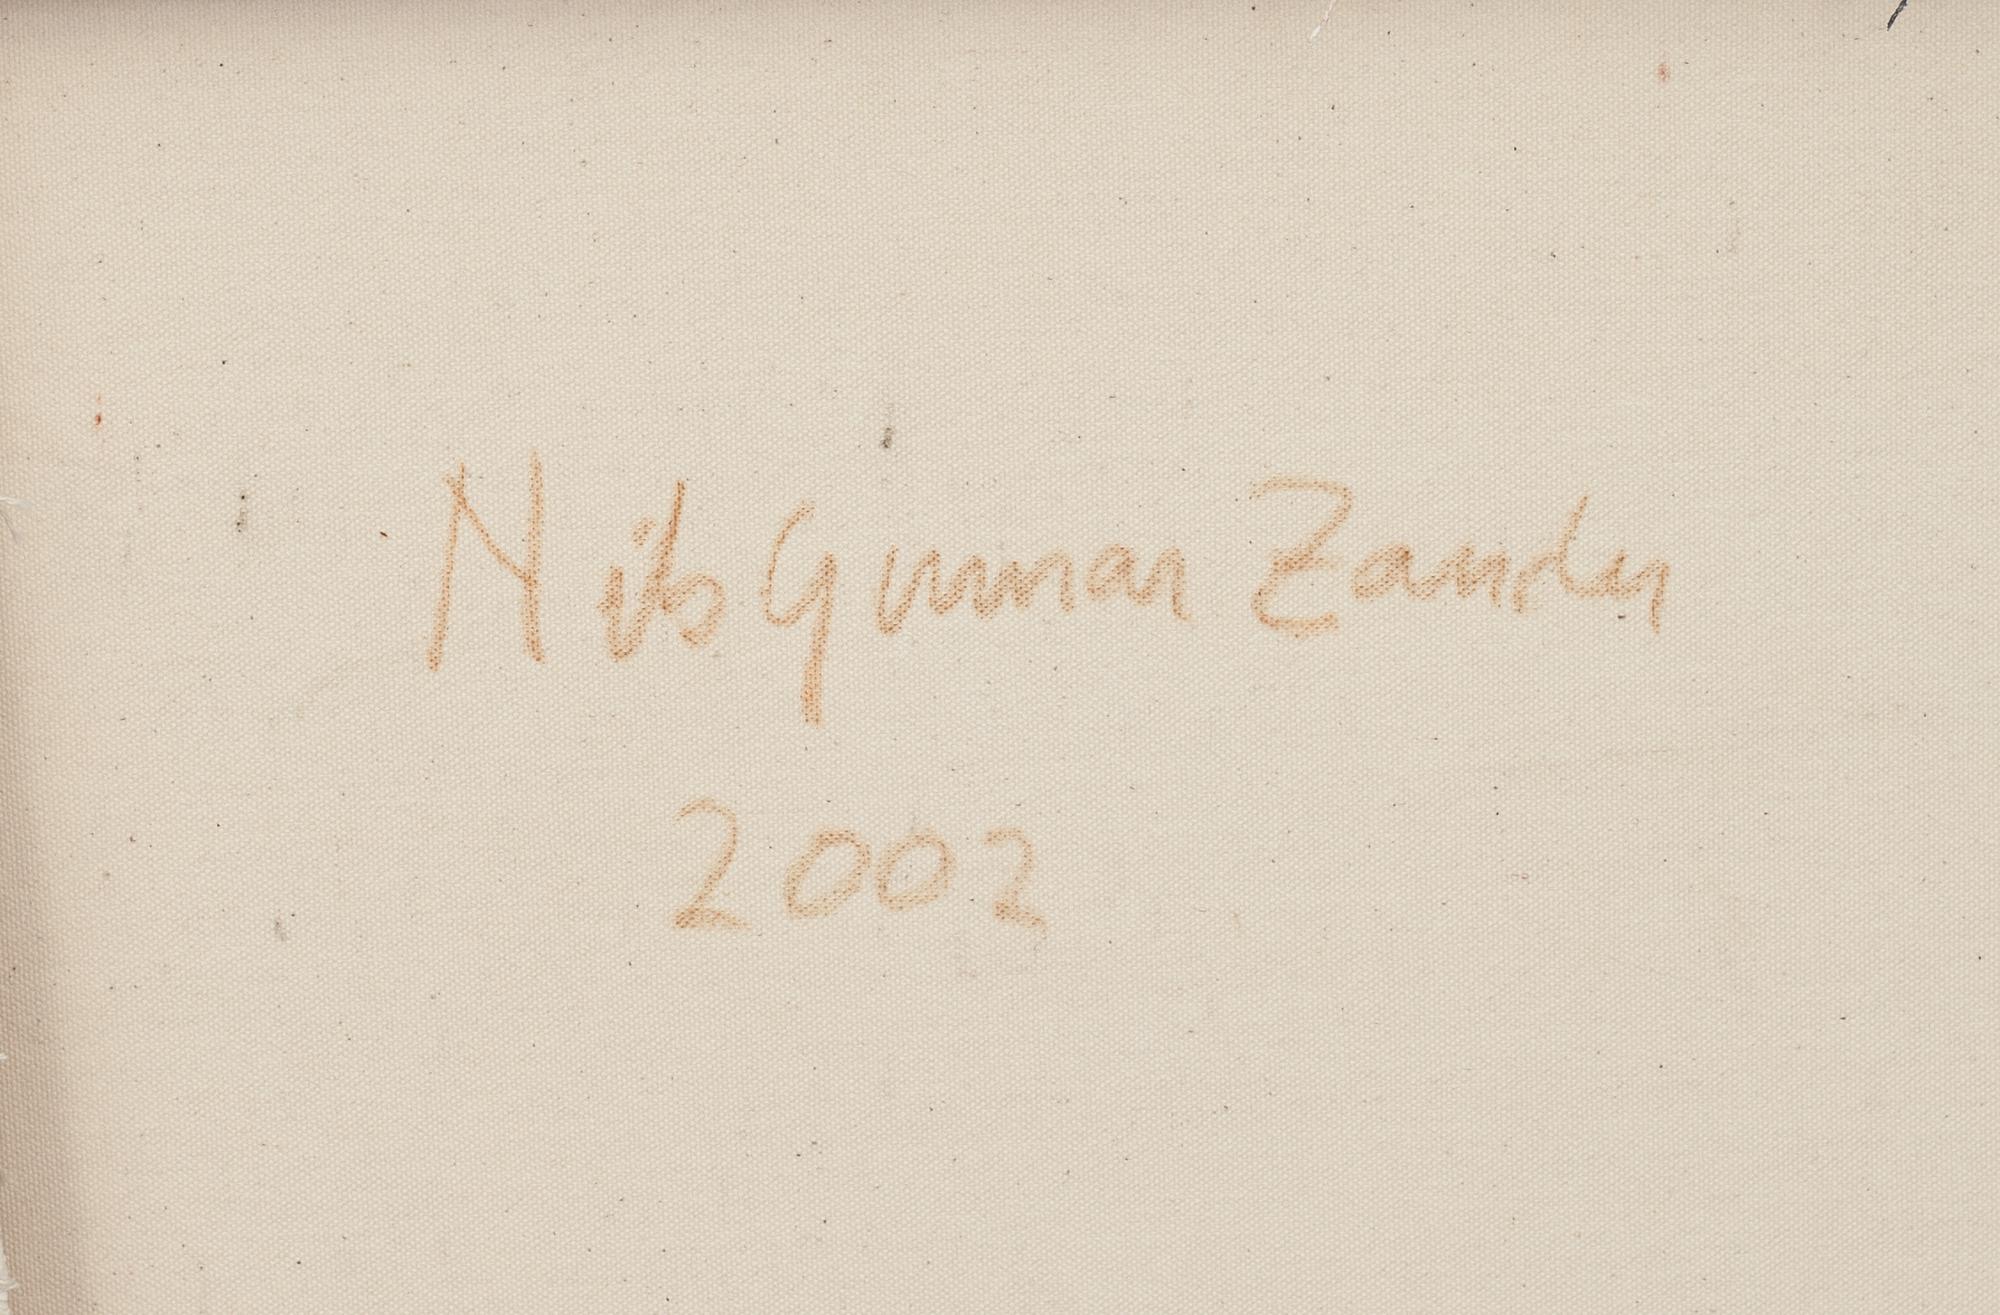 Nils Gunnar Zander
2002